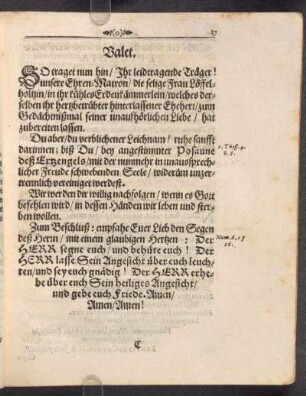 17
Valet.
SO traget nun hin / Ihr leidtragende Träger!
unsere Ehren-Matron / die selige Frau Löffel-
holtzin / in ihr kühles Erdenkämmerlein / welches der-
selben ihr hertzbetrübter hinterlassener Eheherr / zum
Gedächtnißmal seiner unaufhörlichen Liebe / hat
zubereiten lassen.
Du aber / du verblichener Leichnam / ruhe sanfft
darinnen; biß Du / bey angestimmter Posaune
deß Ertzengels / mit der nunmehr in unaussprech-
licher Freude schwebenden Seele / widerum unzer-
trennlich vereiniget werdest.
1. Thess. 4.
Wir werden dir willig nachfolgen / wenn es Gott
befehlen wird / in dessen Händen wir leben und ster-
ben wollen.
Zum Beschluß: empfahe Euer Lieb den Segen
deß Herrn / mit einem glaubigen Hertzen: Der
HERR segne euch / und behüte euch! Der
HERR lasse Sein Angesicht über euch leuch-
ten / und sey euch gnädig! Der HERR erhe-
be über euch Sein heiliges Angesicht /
und gebe euch Friede. Amen /
Amen / Amen!
Num. 6.
26.
C